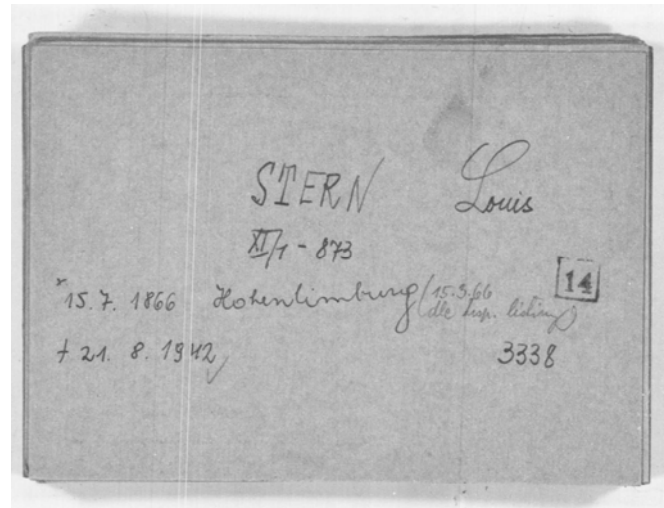 STERN Louis
XI/1 - 873
14
* 15. 7. 1866 Hohenlimburg (15.3.66
dle tsp. listiny)
+ 21. 8. 1942 3338